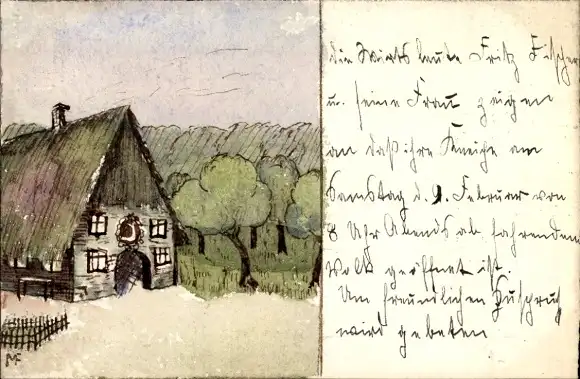 die Wirtsleute Fritz Fischer
u. seine Frau zeigen
an daß ihre Kneipe am
Samstag d. 9. Februar von
8 Uhr Abends ab fahrendem
Volk geöffnet ist.
Um freundlichen Zuspruch
wird gebeten
MF